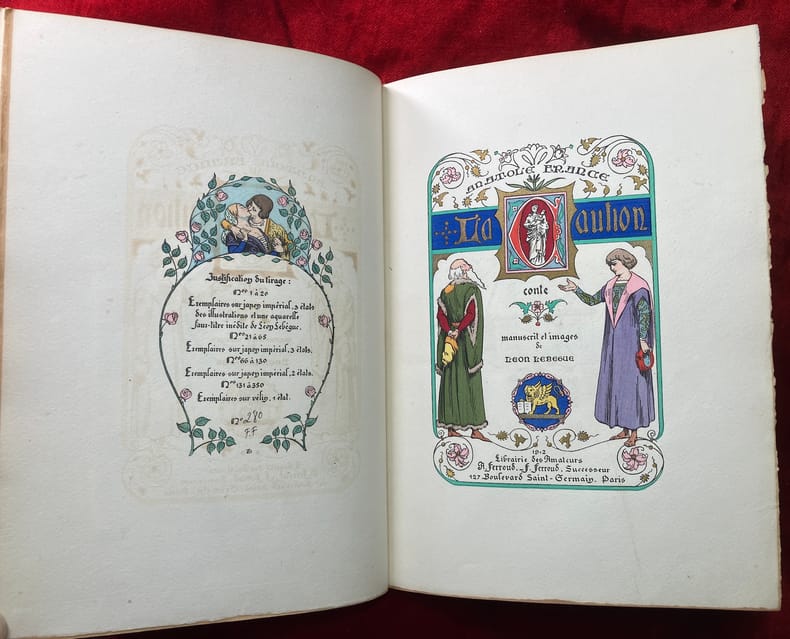 Justification du tirage :
Nos 1 à 20
Exemplaires sur japon impérial, 3 états
des illustrations et une aquarelle
faux-titre inédite de Léon Lebègue.
Nos 21 à 65
Exemplaires sur japon impérial, 3 états.
Nos 66 à 130
Exemplaires sur japon impérial, 2 états.
Nos 131 à 350
Exemplaires sur vélin, 1 état.
No 280
F.F
ANATOLE FRANCE
La Caution
conte
manuscrit et images
de
LEON LEBEGUE
1912
Librairie des Amateurs
A. Ferroud. - F. Ferroud, Successeur
127 Boulevard Saint-Germain. Paris